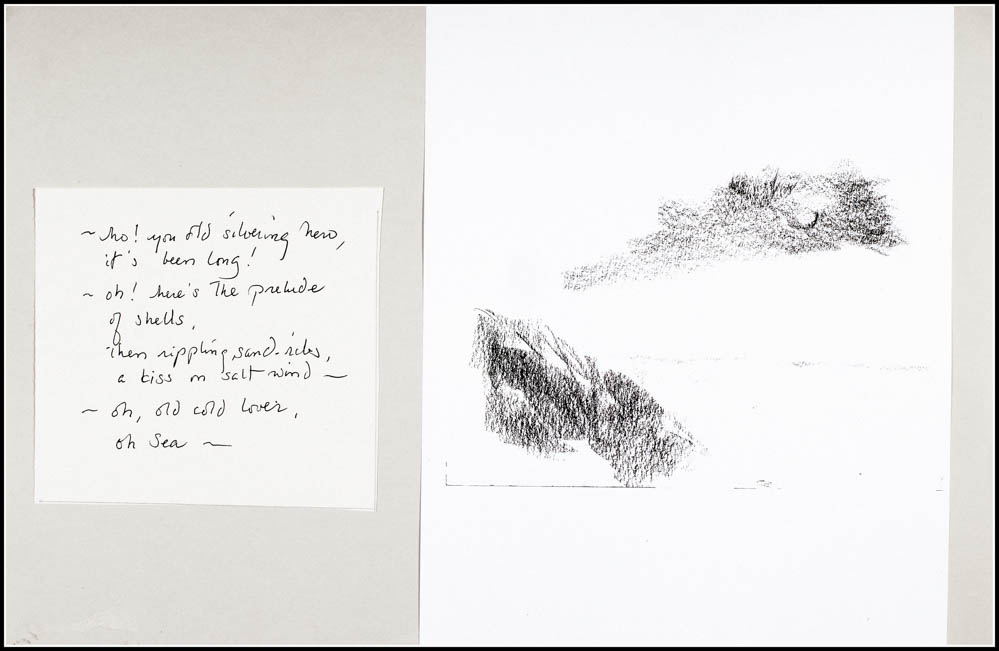 ~ ho! you old silvering hero,
it's been long!
~ oh! here's The prelude
of shells,
then rippling sand-ribs,
a kiss on salt wind ~
~ oh, old cold lover,
oh Sea ~